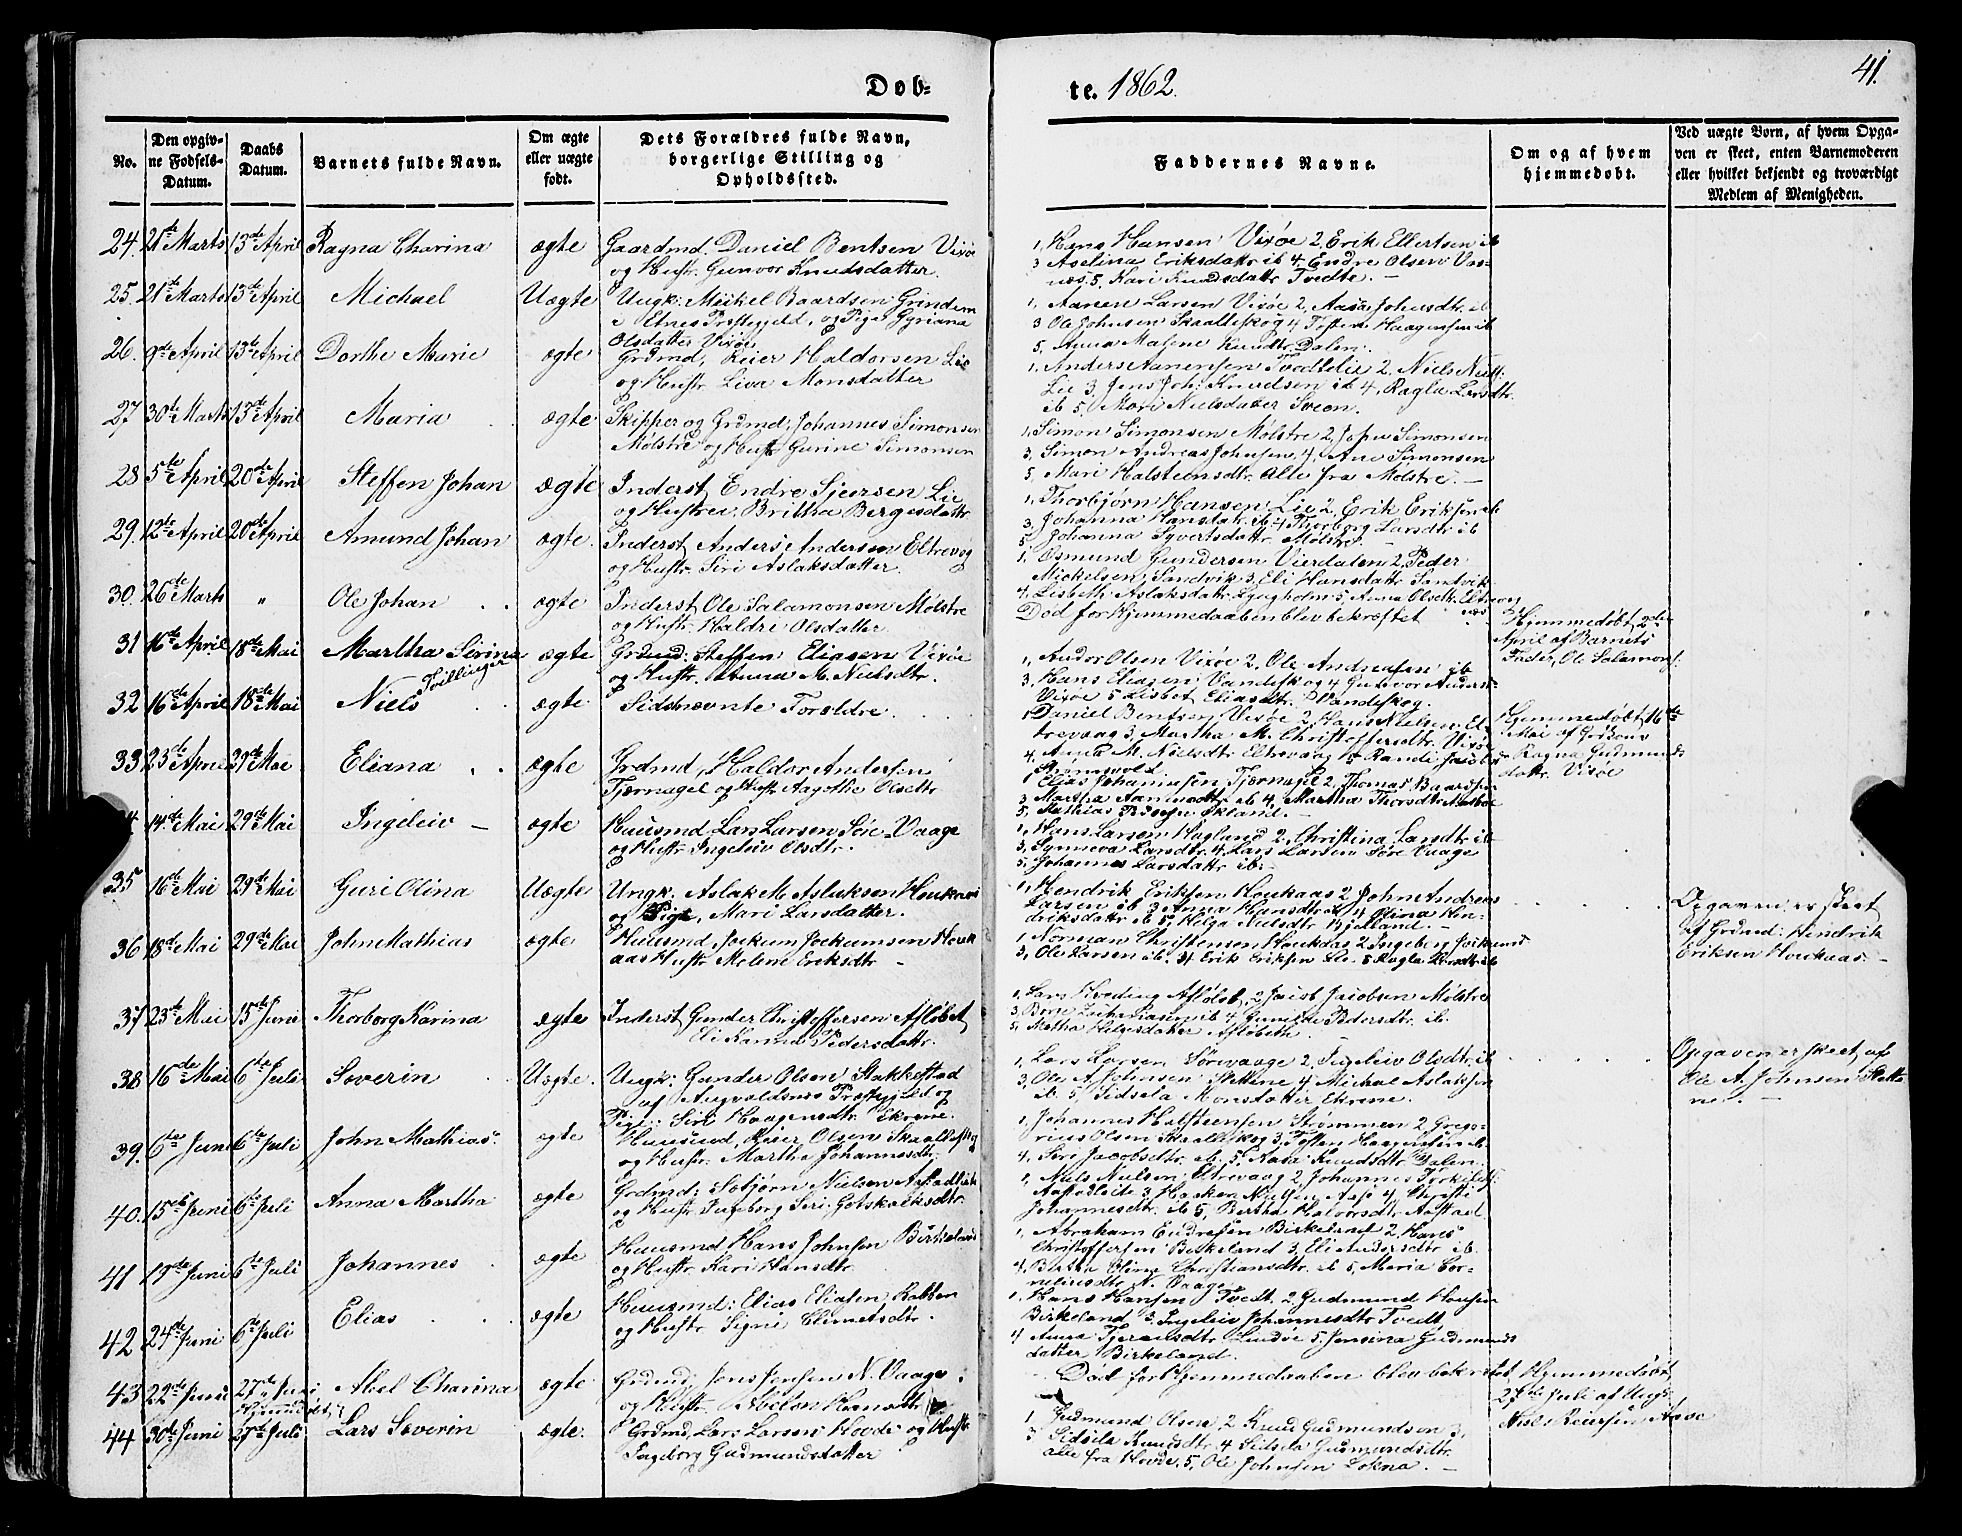 Døb-
te. 1862.
41
No.
Den opgiv-
ne Fødsels-
Datum.
Daabs
Datum.
Barnets fulde Navn.
Om ægte
eller uægte
født.
Dets Forældres fulde Navn,
borgerlige Stilling og
Opholdssted.
Faddernes Navne.
Om og af hvem
hjemmedøbt.
Ved uægte Born, af hvem Opga-
ven er skeet, enten Barnemoderen
eller hvilket bekjendt og troværdigt
Medlem af Menigheden.
24. 21de Marts 13de April Ragna Charina ægte Gaardmd. Daniel Bentsen Vixøe
og Hustr. Gunvor Knudsdatter.
1, Hans Hansen Vixøe 2, Erik Ellertsen ib
3 Aselina Eriksdattr ib 4, Endre Olsen Vas-
nes 5, Kari Knudsdattr Tvedte. —
25. 21de Marts 13de April Michael Uægte Ungk: Mikkel Baardsen Grindem
i Etnes Præstegjeld, og Pige Gyriana
Olsdatter Vixøe
1, Aanen Larsen Vixøe 2, Aasa Johnsdtr. ib
3 Ole Johnsen Skaalleskog 4 Tosten Haagensen ib
5, Anna Malene Knudtr. Dalen.
26. 9de April 13de April Dorthe Marie ægte Grdmd, Reier Haldorsen Lie
og Hustr Liva Monsdatter
1, Anders Aanensen Tvedtelie 2, Niels Niels.
Lie 3, Jens Joh: Knudsen ib 4, Ragla Larsdtr.
ib 5, Mari Nielsdatter Sveen.
27 30de Marts 13de April Maria ægte Skipper og Grdmd, Johannes Simonsen
Mølstre og Hustr Gurine Simonsen
1, Simon Simonsen Mølstre 2, John Simonsen
3, Simon Andreas Johnsen, 4, Ane Simonsen
5, Mari Halsteensdtr. Alle fra Mølstre. —
28 5te April 20de April Steffen Johan ægte Inderst Endre Sjursen Lie
og Hustrue Britha Bergesdattr
1, Thorbjørn Hansen Lie 2, Erik Eriksen ib
3, Johanna Hansdatr. ib 4 Thorborg Larsdtr ib
5 Johanna Syvertsdattr. Mølstre.
29. 12te April 20de April Amund Johan ægte. Inderst Anders Andersen Eltrevog
og Hustr. Siri Aslaksdatter.
1, Osmund Gundersen Vierdalen 2, Peder
Mickelsen, Sandvik 3, Eli Hansdattr Sandvik
4, Lisbeth Aslaksdatr. Lyngholm 5, Anna Olsdtr. Eltrevog
30. 26de Marts " Ole Johan ægte Inderst Ole Salamonsen Mølstre
og Hustr. Haldri Olsdatter
Død før Hjemmedaaben blev bekræftet
Hjemmedøbt 2den
April af Barnets
Fader, Ole Salamons.
31 16de April 18de Mai Martha Serina ægte Grdmd: Steffen Eliasen Vixøe
og Hustr. Anna M. Nielsdtr.
Tvillinger
1, Andor Olsen Vixøe 2, Ole Andreasen ib
3, Hans Eliasen Vandeskog 4 Gunvor Anders-
Vixøe 5 Lisbet Eliasdtr. Vandeskog.
32 16de April 18de Mai Niels ægte Sidstnævnte Forældre.
1 Daniel Bentsen Vixøe 2, Hans Nielsen El-
trevaag 3, Martha M. Christoffersdtr. Vixøe
4, Anna M. Nielsdtr Eltrevaag 5 Randi Jacobs
Grønevold.
Hjemmedøbt 16de
Mai af Grdkone
Ragna Gudmunds
dattr. Vixøe
33 23de April 29de Mai Eliana ægte Grdmd, Haldor Andersen
Tjernagel og Hustr Aagothe Olsdtr
1 Elias Johannesen Tjernagel 2, Thomas Baardsen
3 Martha Aanensdtr. ib 4, Martha Thorsdtr.
5, Mathias Ekland. —
14de Mai 29de Mai Ingeleiv — ægte Huusmd Lars Larsen Søre-Vaage
og Hustr Ingeleiv Olsdtr.
1, Hans Larsen Hagland 2, Christina Larsdtr ib
3, Synneva Larsdtr. 4, Lars Larsen Søre Vaage
5, Johannes Larsdattr ib.
35 16de Mai 29de Mai Guri Olina Uægte Ungk. Aslak M. Aslaksen Houkaas
og Pige, Mari Larsdatter.
1, Hendrik Eriksen Houkaas 2 John Andreas
Larsen ib 3 Anna Hansdtr ib 4 Olina Hen-
driksdattr ib 5, Helga Nielsdtr Kjelland. —
Opgaven er skeet
af Grdmd: Hendrik
Eriksen Houkaas. —
36 18de Mai 29de Mai John Mathias ægte Huusmd, Jockum Jockumsen Houk
aas Hustr Malene Eriksdtr —
1, Norman Christensen Houkaas 2 Ingeborg Jockumsd
3, Ole Larsen ib. 4 Erik Eriksen Lie 5 Ragla Larsdtr ib
37 23de Mai 15de Juni Thorborg Karina ægte Inderst Gunder Christoffersen Afløbet
Eli Karina Pedersdattr.
1, Lars Hveding Afløbt, 2 Jacob Jacobsen Mølstre
3, Børre Zachariasen ib 4 Gunilde Pedersdtr. ib.
5, Martha Helgesdatter Afløbet.
38 16de Mai 6te Juli Severin Uægte. Ungk: Gunder Olsen Stakkestad
af Augvaldsnes Præstegjeld og
Pige: Siri Haagensdtr Ekrene.
1, Lars Larsen Sørvaage 2, Ingeleiv Olsdtr ib
3, Ole A. Johnsen Slettene 4 Michal Aslaksen
ib. 5, Sidsela Monsdatter Ekrene.
Opgaven er skeet af
Ole A. Johnsen Slette
ne. —
39. 6te Juni 6te Juli John Mathias ægte Huusmd, Reier Olsen Skaalleskog
og Hustr. Martha Johannesdtr.
1, Johannes Halsteensen Strømmen 2, Grego-
rius Olsen Skaalleskog 3, Tosten Haagensen ib.
4, Siri Jacobsdtr. ib. 5, Aasa Knudsdtr. Dalen.
40. 15de Juni 6te Juli Anna Martha ægte Grdmd: Asbjørn Nielsen Aastadleite
og Hustr. Ingeborg Siri Gotskalksdtr.
1, Niels Nielsen Eltrevaag 2 Johannes Torkilds.
Aastadleite 3, Haaken Nielsen Aase 4, Christi
Johannesdtr. ib 5, Bertha Halvorsdtr. Aastad.
41 19de Juni 6te Juli Johannes ægte Huusmd Hans Johnsen Birkeland
og Hustr Kari Hansdtr.
1, Abraham Endresen Birkeland 2 Hans
Christoffersen Birkeland 3, Eli Andersdtr ib.
4, Berta Oline Christiansdtr. ib 5, Maria Cor-
neliusdtr N. Vaage.
42 24de Juni 6te Juli Elias ægte Huusmd: Elias Eliasen Ratten
og Hustr Signe Clemetsdtr.
1, Hans Hansen Tvedt. 2, Gudmund Hansen
Birkeland 3, Ingeleiv Johannesdtr Tvedt
4 Anna Tjeransdtr Lindøe 5, Jensina Gudmunds
datter Birkeland.
43 22de Juni 27de Juni Abel Charina ægte Grdmd; Jens Jensen N. Vaage
Hjemmedøbt. og Hustr. Abelon Hansdtr
Død før Hjemmedaaben blev bekræftet,
Hjemmedøbt
27de Juli af Ungk.
Niels Reiersen Aase
44 30de Juni 27de Juli Lars Severin ægte. Grdmd, Lars Larsen Hovde og Hustr
Ingeborg Gudmundsdatter
1 Gudmund Olsen 2 Knud Gudmundsen 3,
3 Sidsela Knudsdtr 4 Sidsela Gudmundsdtr.
alle fra Hovde. 5, Ole Johnsen Lokna. —